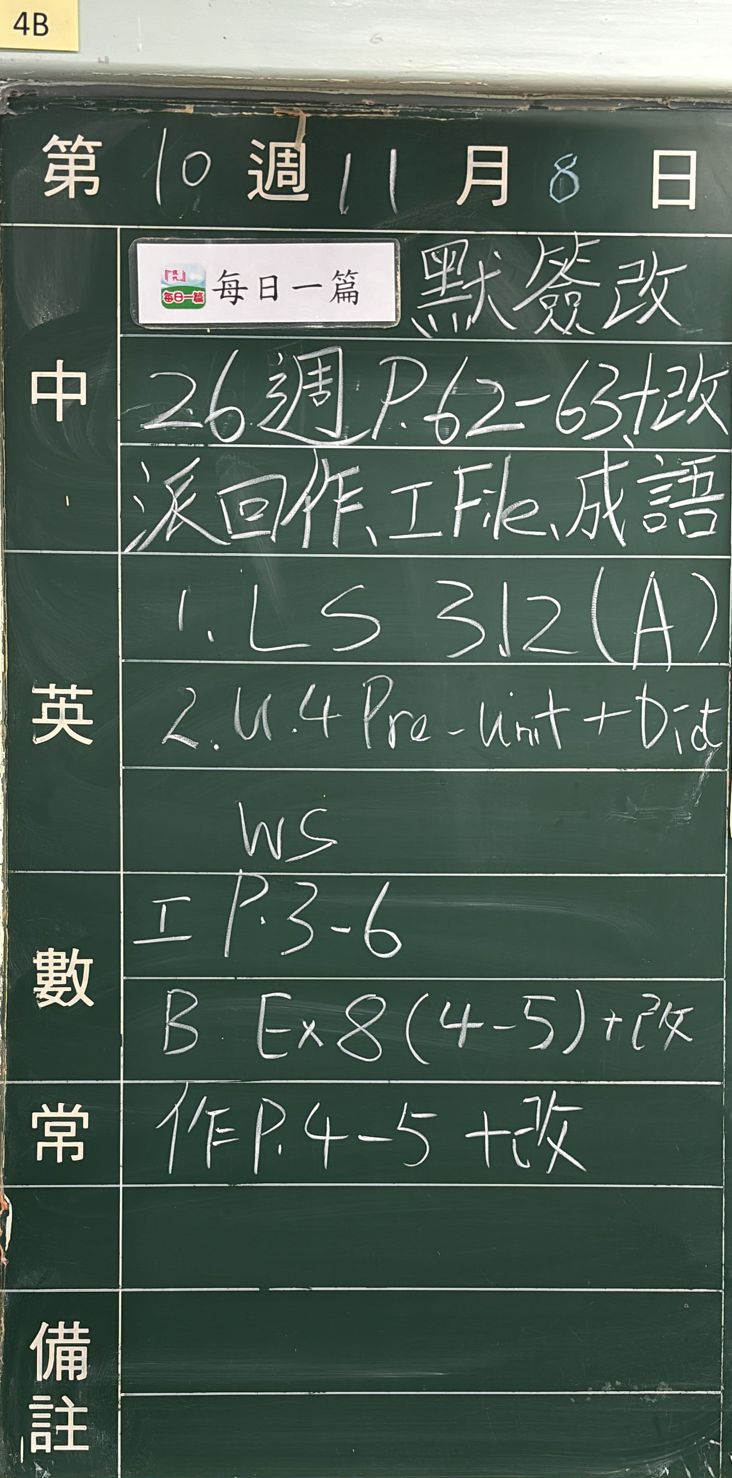 4B
第10週11月8日
中
每日一篇 默簽改
26週P.62-63+改
派回作、工File、成語
英
1. LS 3.12(A)
2. U.4 Pre-Unit + Dict
WS
數
工 P.3-6
B Ex 8(4-5)+改
常
作P.4-5+改
備註